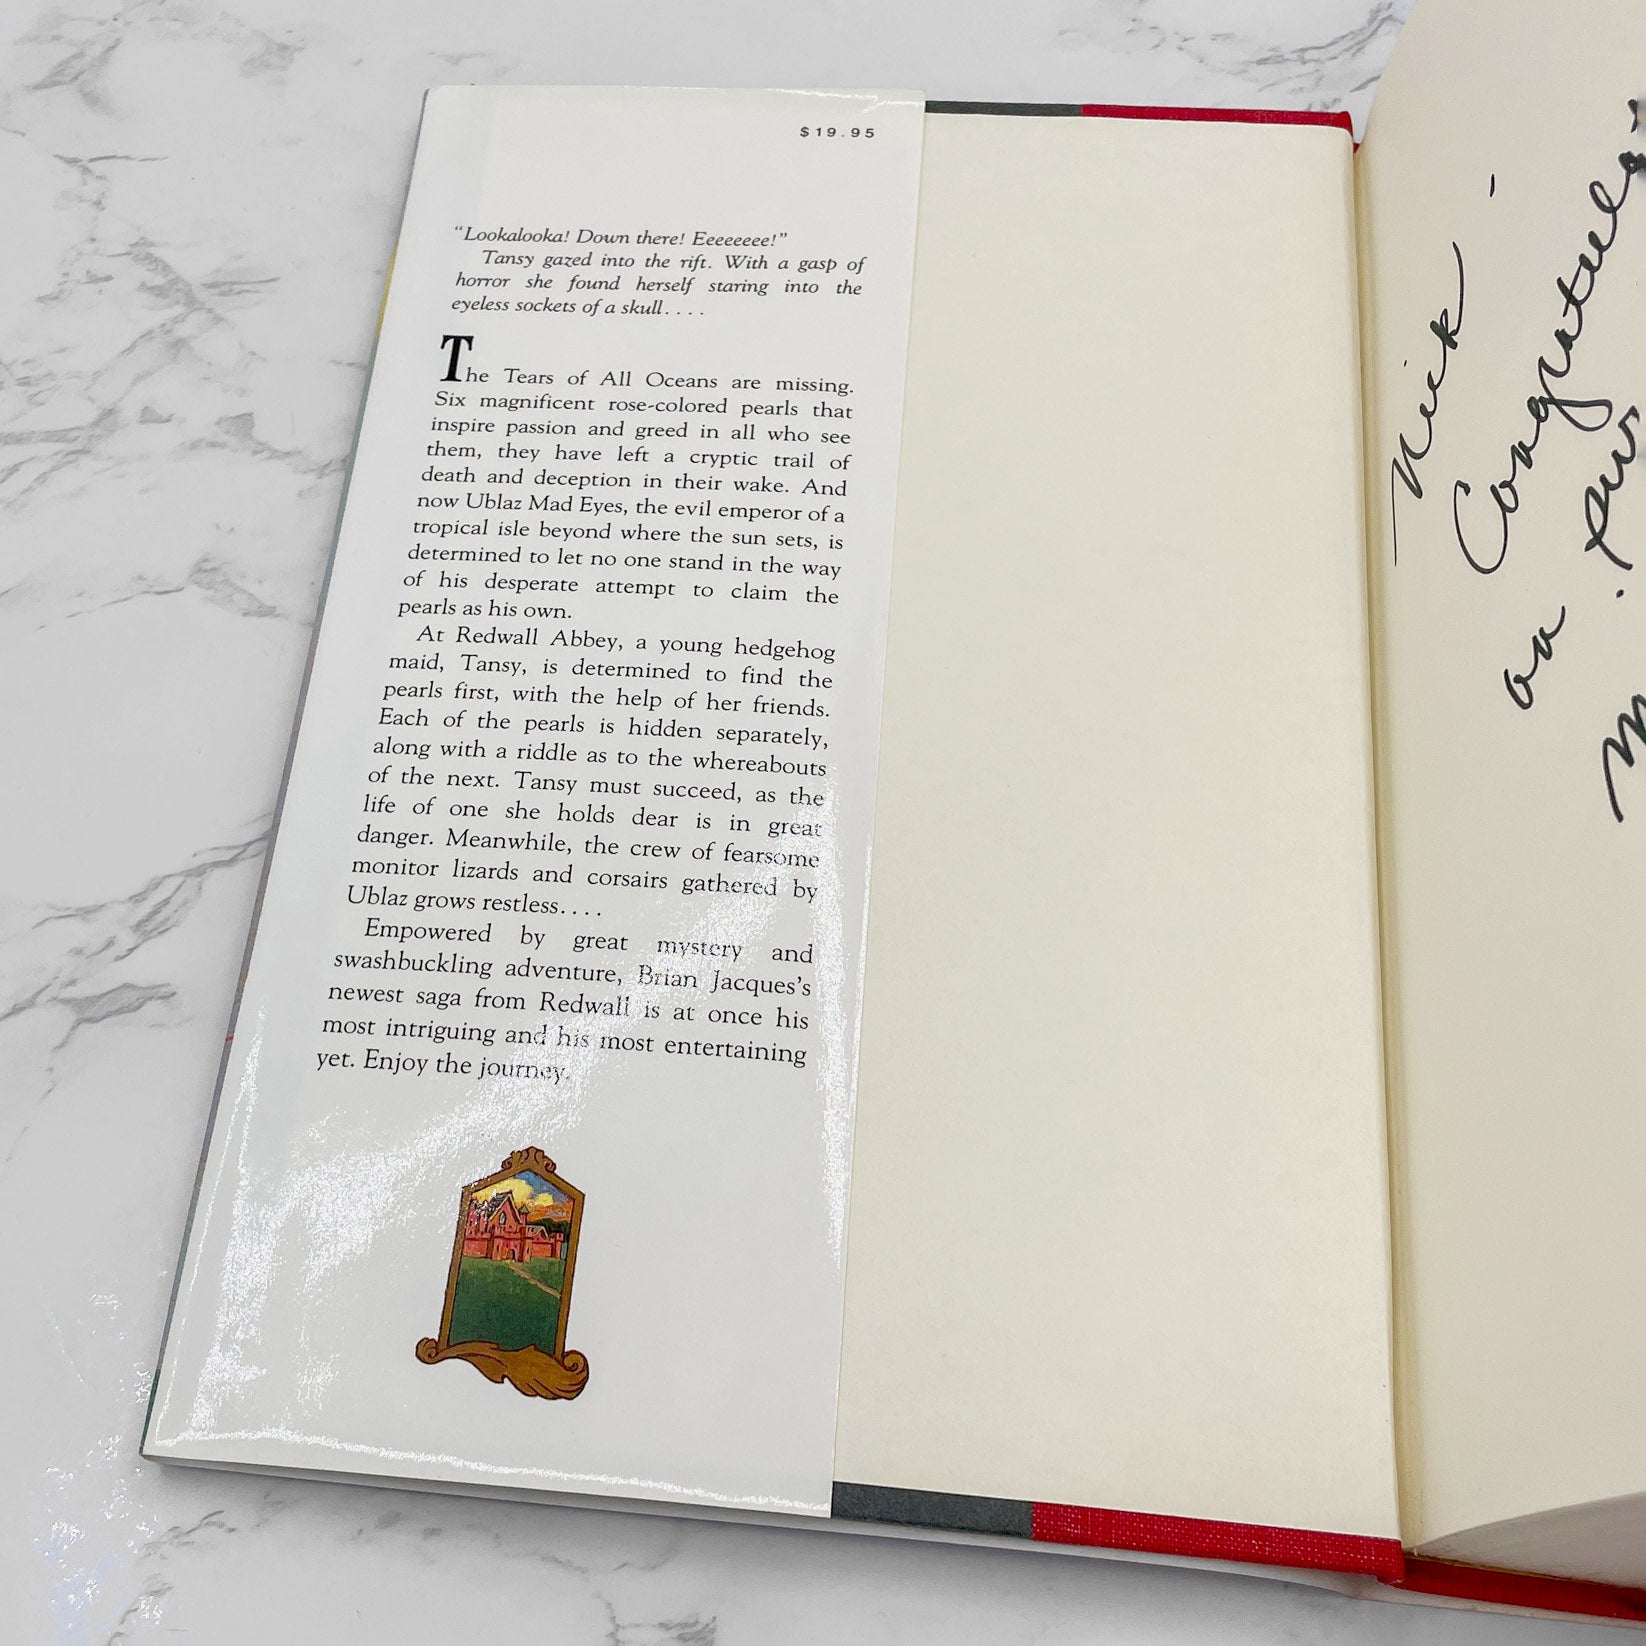 $19.95
“Lookalooka! Down there! Eeeeeeee!”
Tansy gazed into the rift. With a gasp of
horror she found herself staring into the
eyeless sockets of a skull. . . .
The Tears of All Oceans are missing.
Six magnificent rose-colored pearls that
inspire passion and greed in all who see
them, they have left a cryptic trail of
death and deception in their wake. And
now Ublaz Mad Eyes, the evil emperor of a
tropical isle beyond where the sun sets, is
determined to let no one stand in the way
of his desperate attempt to claim the
pearls as his own.
At Redwall Abbey, a young hedgehog
maid, Tansy, is determined to find the
pearls first, with the help of her friends.
Each of the pearls is hidden separately,
along with a riddle as to the whereabouts
of the next. Tansy must succeed, as the
life of one she holds dear is in great
danger. Meanwhile, the crew of fearsome
monitor lizards and corsairs gathered by
Ublaz grows restless. . . .
Empowered by great mystery and
swashbuckling adventure, Brian Jacques’s
newest saga from Redwall is at once his
most intriguing and his most entertaining
yet. Enjoy the journey.
Nick -
Congratula
on